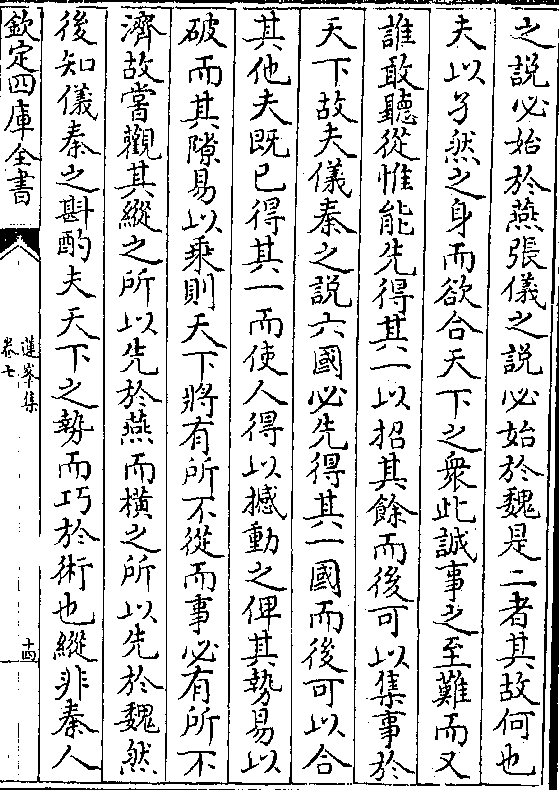 之說必始於燕張儀之說必始於魏是二者其故何也
夫以孑然之身而欲合天下之衆此誠事之至難而又
誰敢聽從惟能先得其一以招其餘而後可以集事於
天下故夫儀秦之説六國必先得其一國而後可以合
其他夫既已得其一而使人得以撼動之俾其勢易以
破而其隙易以乗則天下將有所不從而事必有所不
濟故嘗觀其縱之所以先於燕而横之所以先於魏然
後知儀秦之斟酌夫天下之勢而巧於術也縱非秦人
欽定四庫全書
蓮峯集
卷七
十四